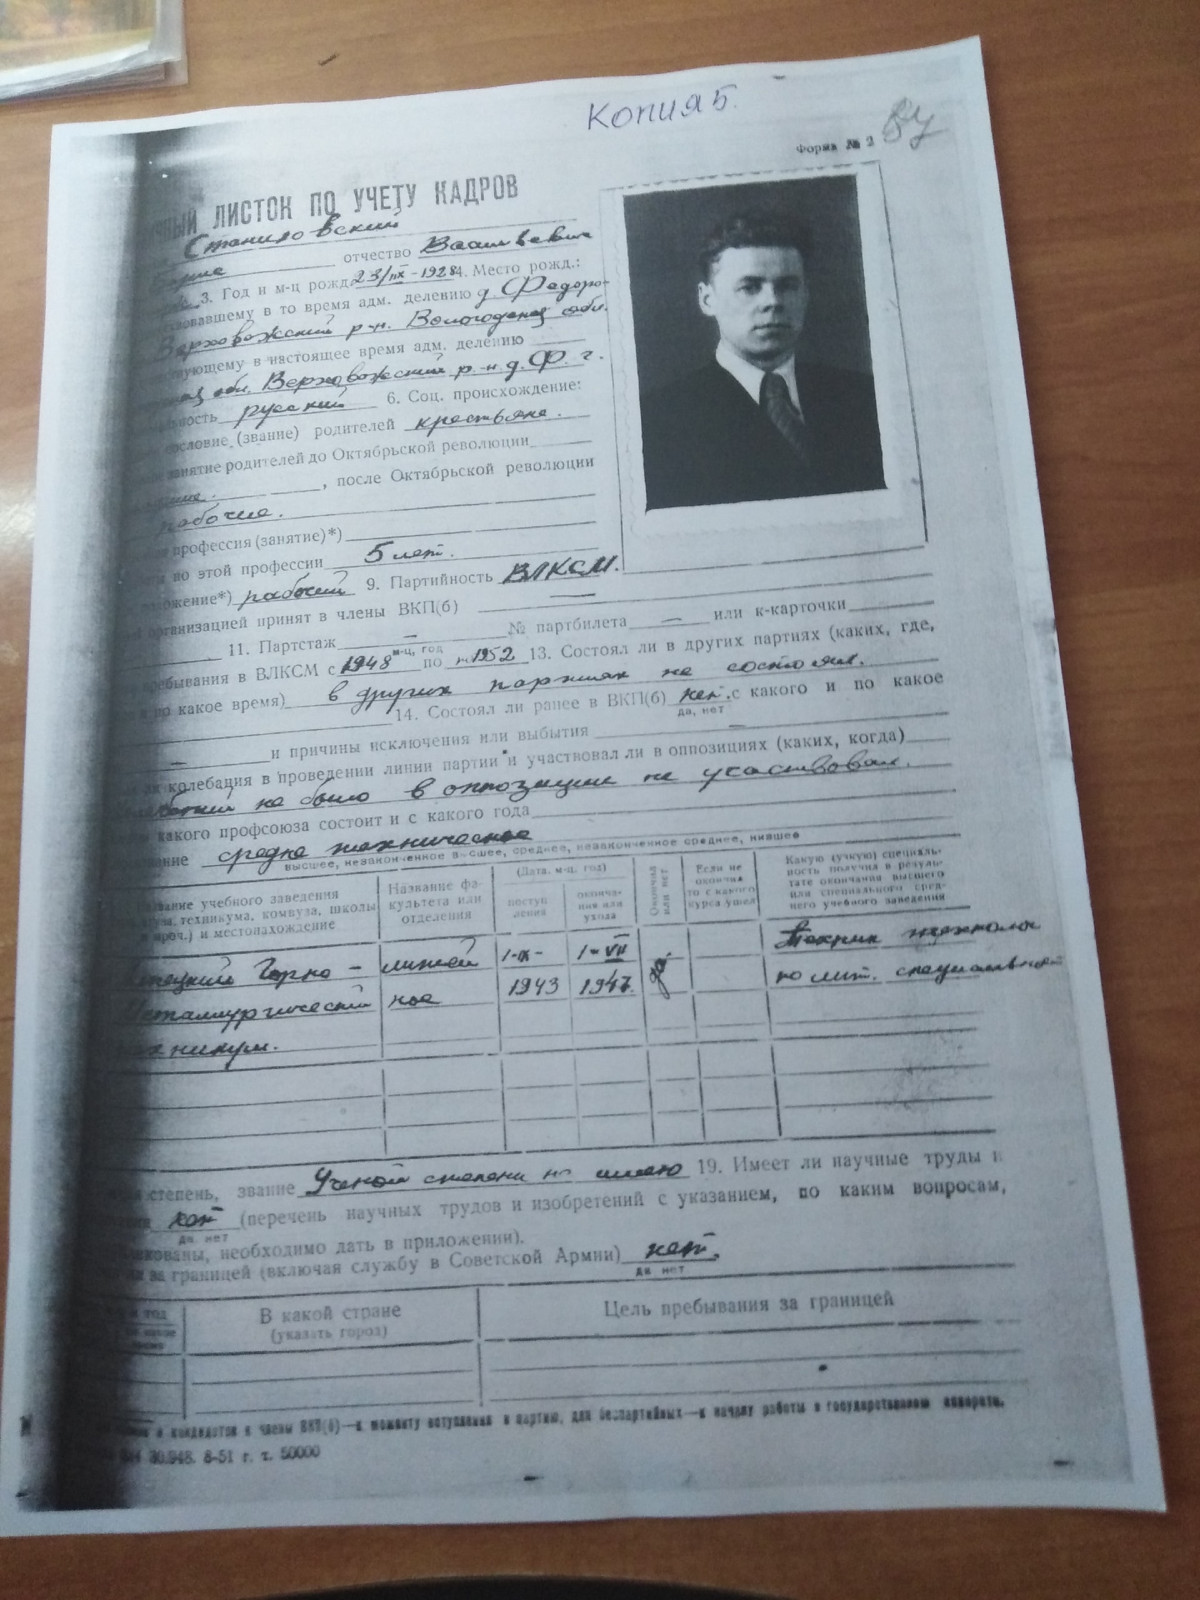 Копия 5.
Форма № 2
ЛИСТОК ПО УЧЕТУ КАДРОВ
отчество Васильевич
3. Год и м-ц рожд. 23/IX-1928 4. Место рожд.:
ствовавшему в то время адм. делению д. Федоро-
Верховажский р-н. Вологодская обл.
ствующему в настоящее время адм. делению
обл. Верховажский р-н д. Ф. г.
русский 6. Соц. происхождение:
сословие (звание) родителей крестьяне.
занятие родителей до Октябрьской революции
, после Октябрьской революции
рабочие.
профессия (занятие)*)
по этой профессии 5 лет.
рабочий 9. Партийность ВЛКСМ.
организацией принят в члены ВКП(б) —
11. Партстаж — № партбилета — или к-карточки
м-ц, год
пребывания в ВЛКСМ с 1948 по 1952 13. Состоял ли в других партиях (каких, где,
по какое время) в других партиях не состоял.
14. Состоял ли ранее в ВКП(б) нет. с какого и по какое
да, нет
— и причины исключения или выбытия —
колебания в проведении линии партии и участвовал ли в оппозициях (каких, когда)
не было в оппозиции не участвовал.
какого профсоюза состоит и с какого года
средне техническое
высшее, незаконченное высшее, среднее, незаконченное среднее, низшее
звание учебного заведения техникума, комвуза, школы и проч.) и местонахождение
Название факультета или отделения
(Дата, м-ц, год)
поступления
окончания или ухода
Окончил или нет
Если не окончил то с какого курса ушел
Какую (узкую) специальность получил в результате окончания высшего или специального среднего учебного заведения
Горно- литей 1-IX- 1-VII да. Техник технолог
Металлургический ное 1943 1947. по лит. специальност
техникум.
степень, звание Ученой степени не имею 19. Имеет ли научные труды и
нет (перечень научных трудов и изобретений с указанием, по каким вопросам,
да нет
необходимо дать в приложении).
за границей (включая службу в Советской Армии) нет.
да нет
В какой стране
(указать город)
Цель пребывания за границей
и кандидатов в члены ВКП(б)—к моменту вступления в партию, для беспартийных—к началу работы в государственном аппарате.
30.948. 8-51 г. т. 50000